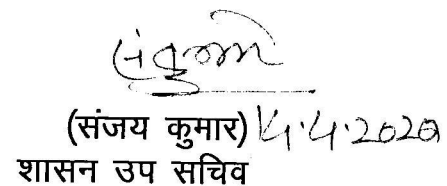 (संजय कुमार) 14.4.2020
शासन उप सचिव